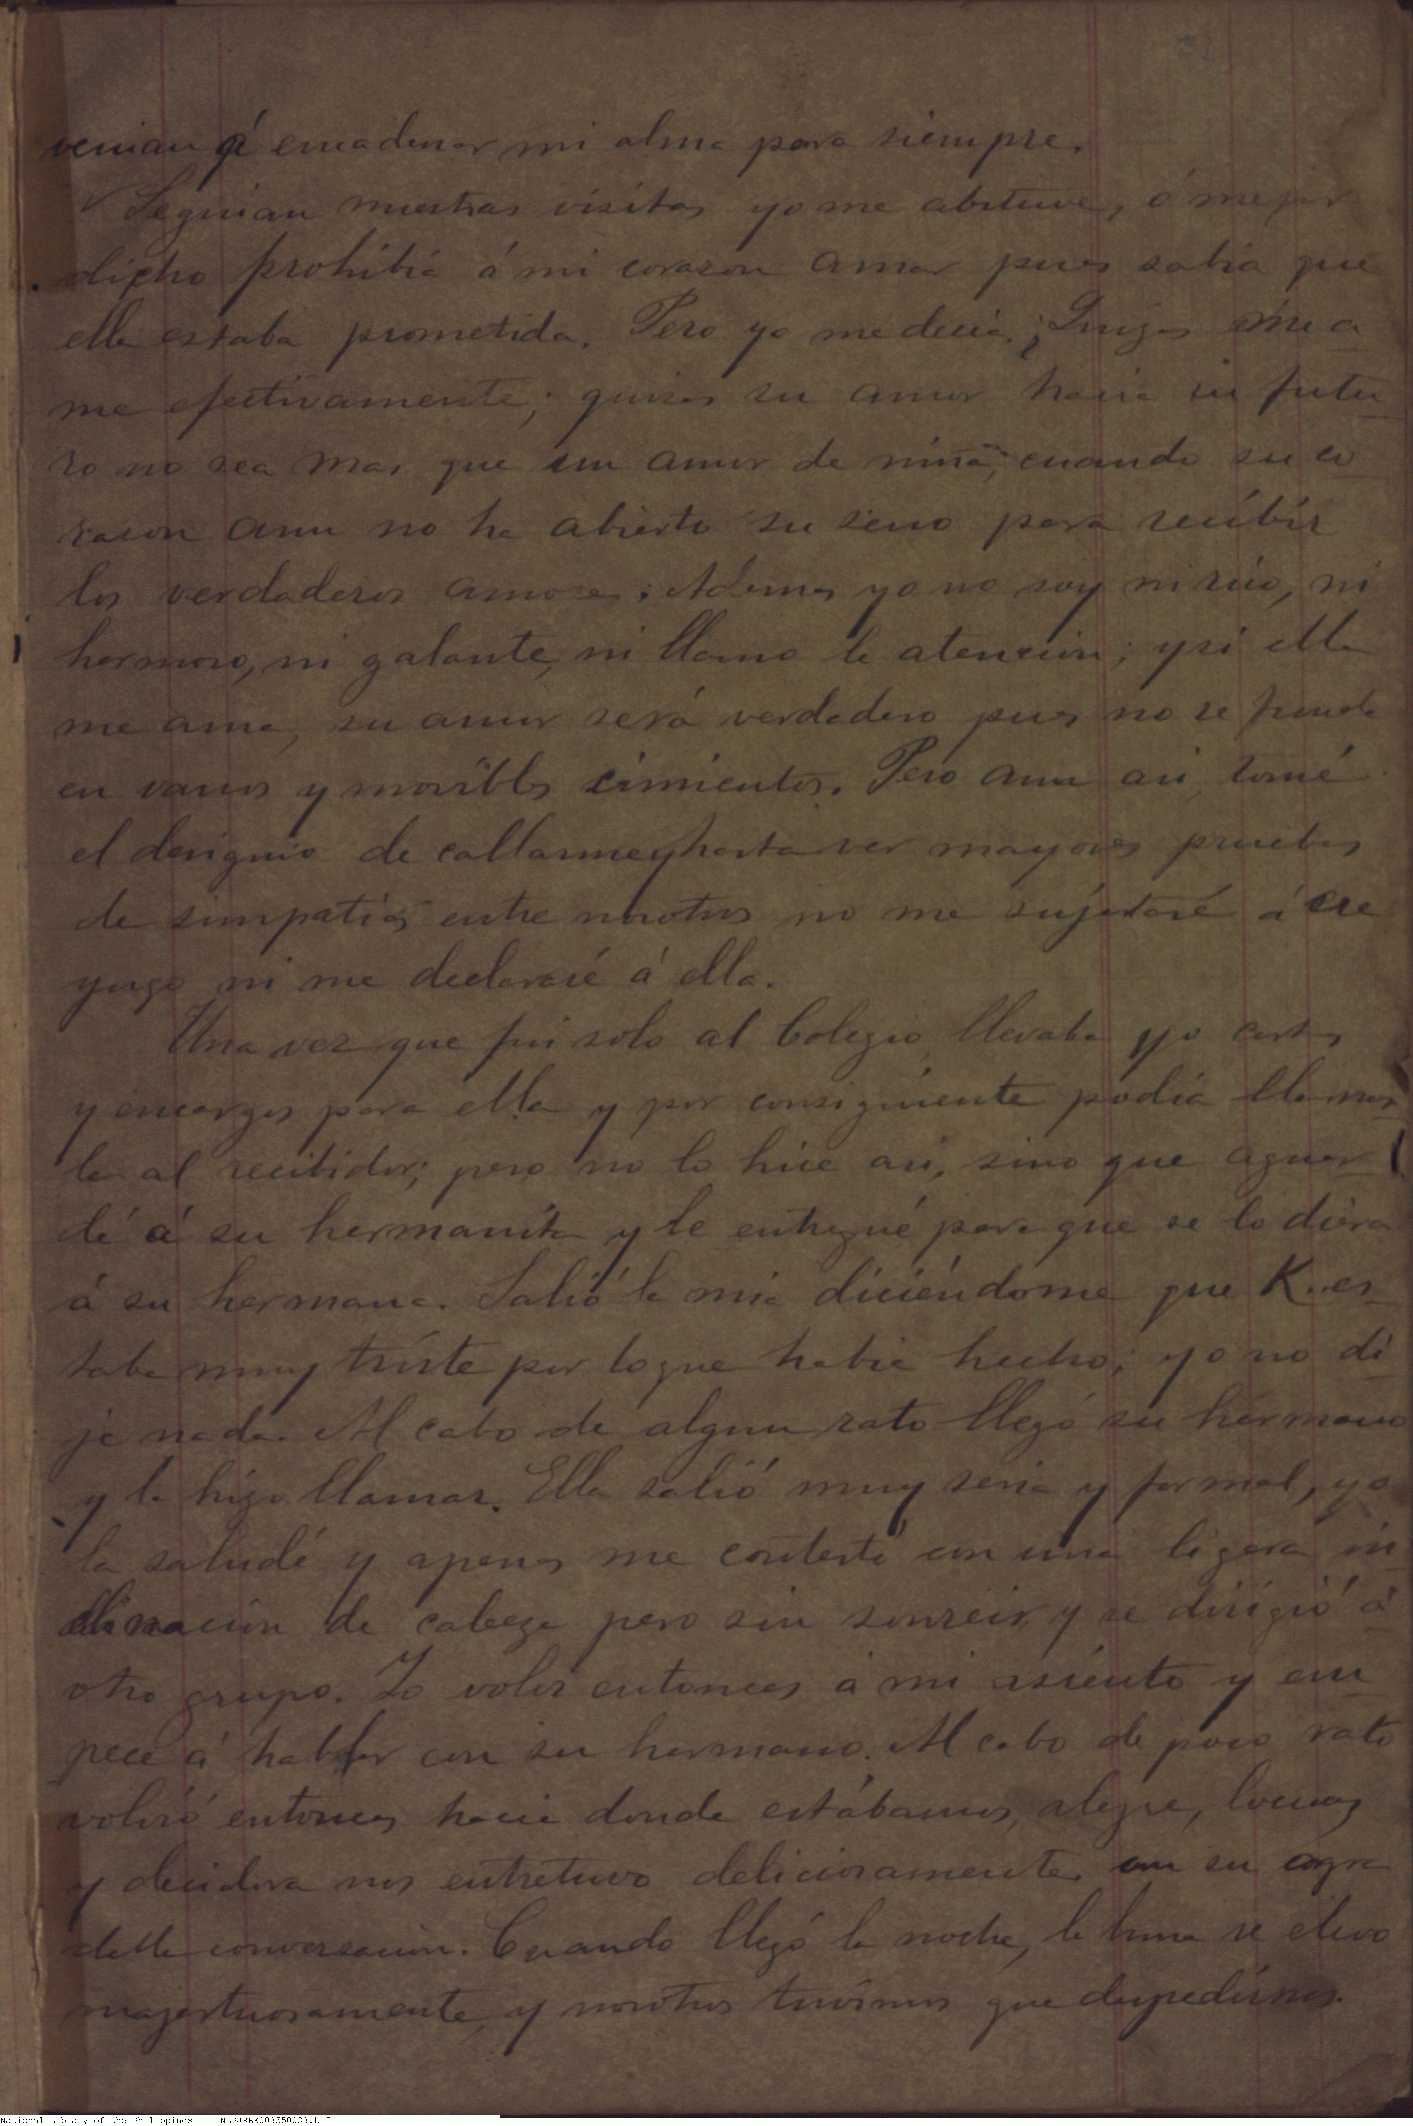 venian á encadenar mi alma para siempre.
Seguian nuestras visitas yo me abstuve, ó mejor
dicho prohibia á mi corazon amar pues sabia que
ella estaba prometida. Pero yo me decia: ¡Quizas me a
me efectivamente; quizas su amor hacia su futu
ro no sea mas que un amor de niña, cuando su co
razon aun no ha abierto su seno para recibir
los verdaderos amores; Ademas yo no soy ni rico, ni
hermoso, ni galante, ni llamo la atencion; y si ella
me ama, su amor será verdadero pues no se funda
en vanos y movibles cimientos. Pero aun asi tomé
el designio de callarme y hasta ver mayores pruebas
de simpatias entre nosotros no me sujetaré á ese
yugo ni me declararé á ella.
Una vez que fui solo al Colegio, llevaba yo cartas
y encargos para ella y por consiguiente podia llamar
la al recibidor; pero no lo hice asi, sino que aguar
dé á su hermanita y le entregué para que se lo diera
á su hermana. Salió la mia diciéndome que K. es
taba muy triste por lo que habia hecho; yo no di
je nada. Al cabo de algun rato llegó su hermano
y la hizo llamar. Ella salió muy seria y formal, yo
la saludé y apenas me contestó con una ligera in
clinacion de cabeza pero sin sonreir y se dirigió á
otro grupo. Yo volvi entonces á mi asiento y em
pece á hablar con su hermano. Al cabo de poco rato
volvió entonces hacia donde estábamos, alegre, locuaz
y decidora nos entretuvo deliciosamente con su agra
dable conversacion. Cuando llegó la noche, la luna se elevó
magestuosamente, y nosotros tuvimos que despedirnos.
National Library of the Philippines